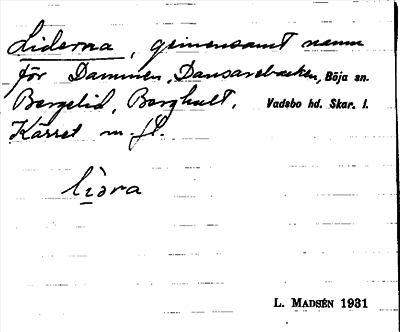 Liderna, gemensamt namn
för Dammen, Dansarebacken, Böja sn.
Bergelid, Berghult, Vadsbo hd. Skar. l.
Kärret m. fl.
lìdṛna
L. MADSÉN 1931